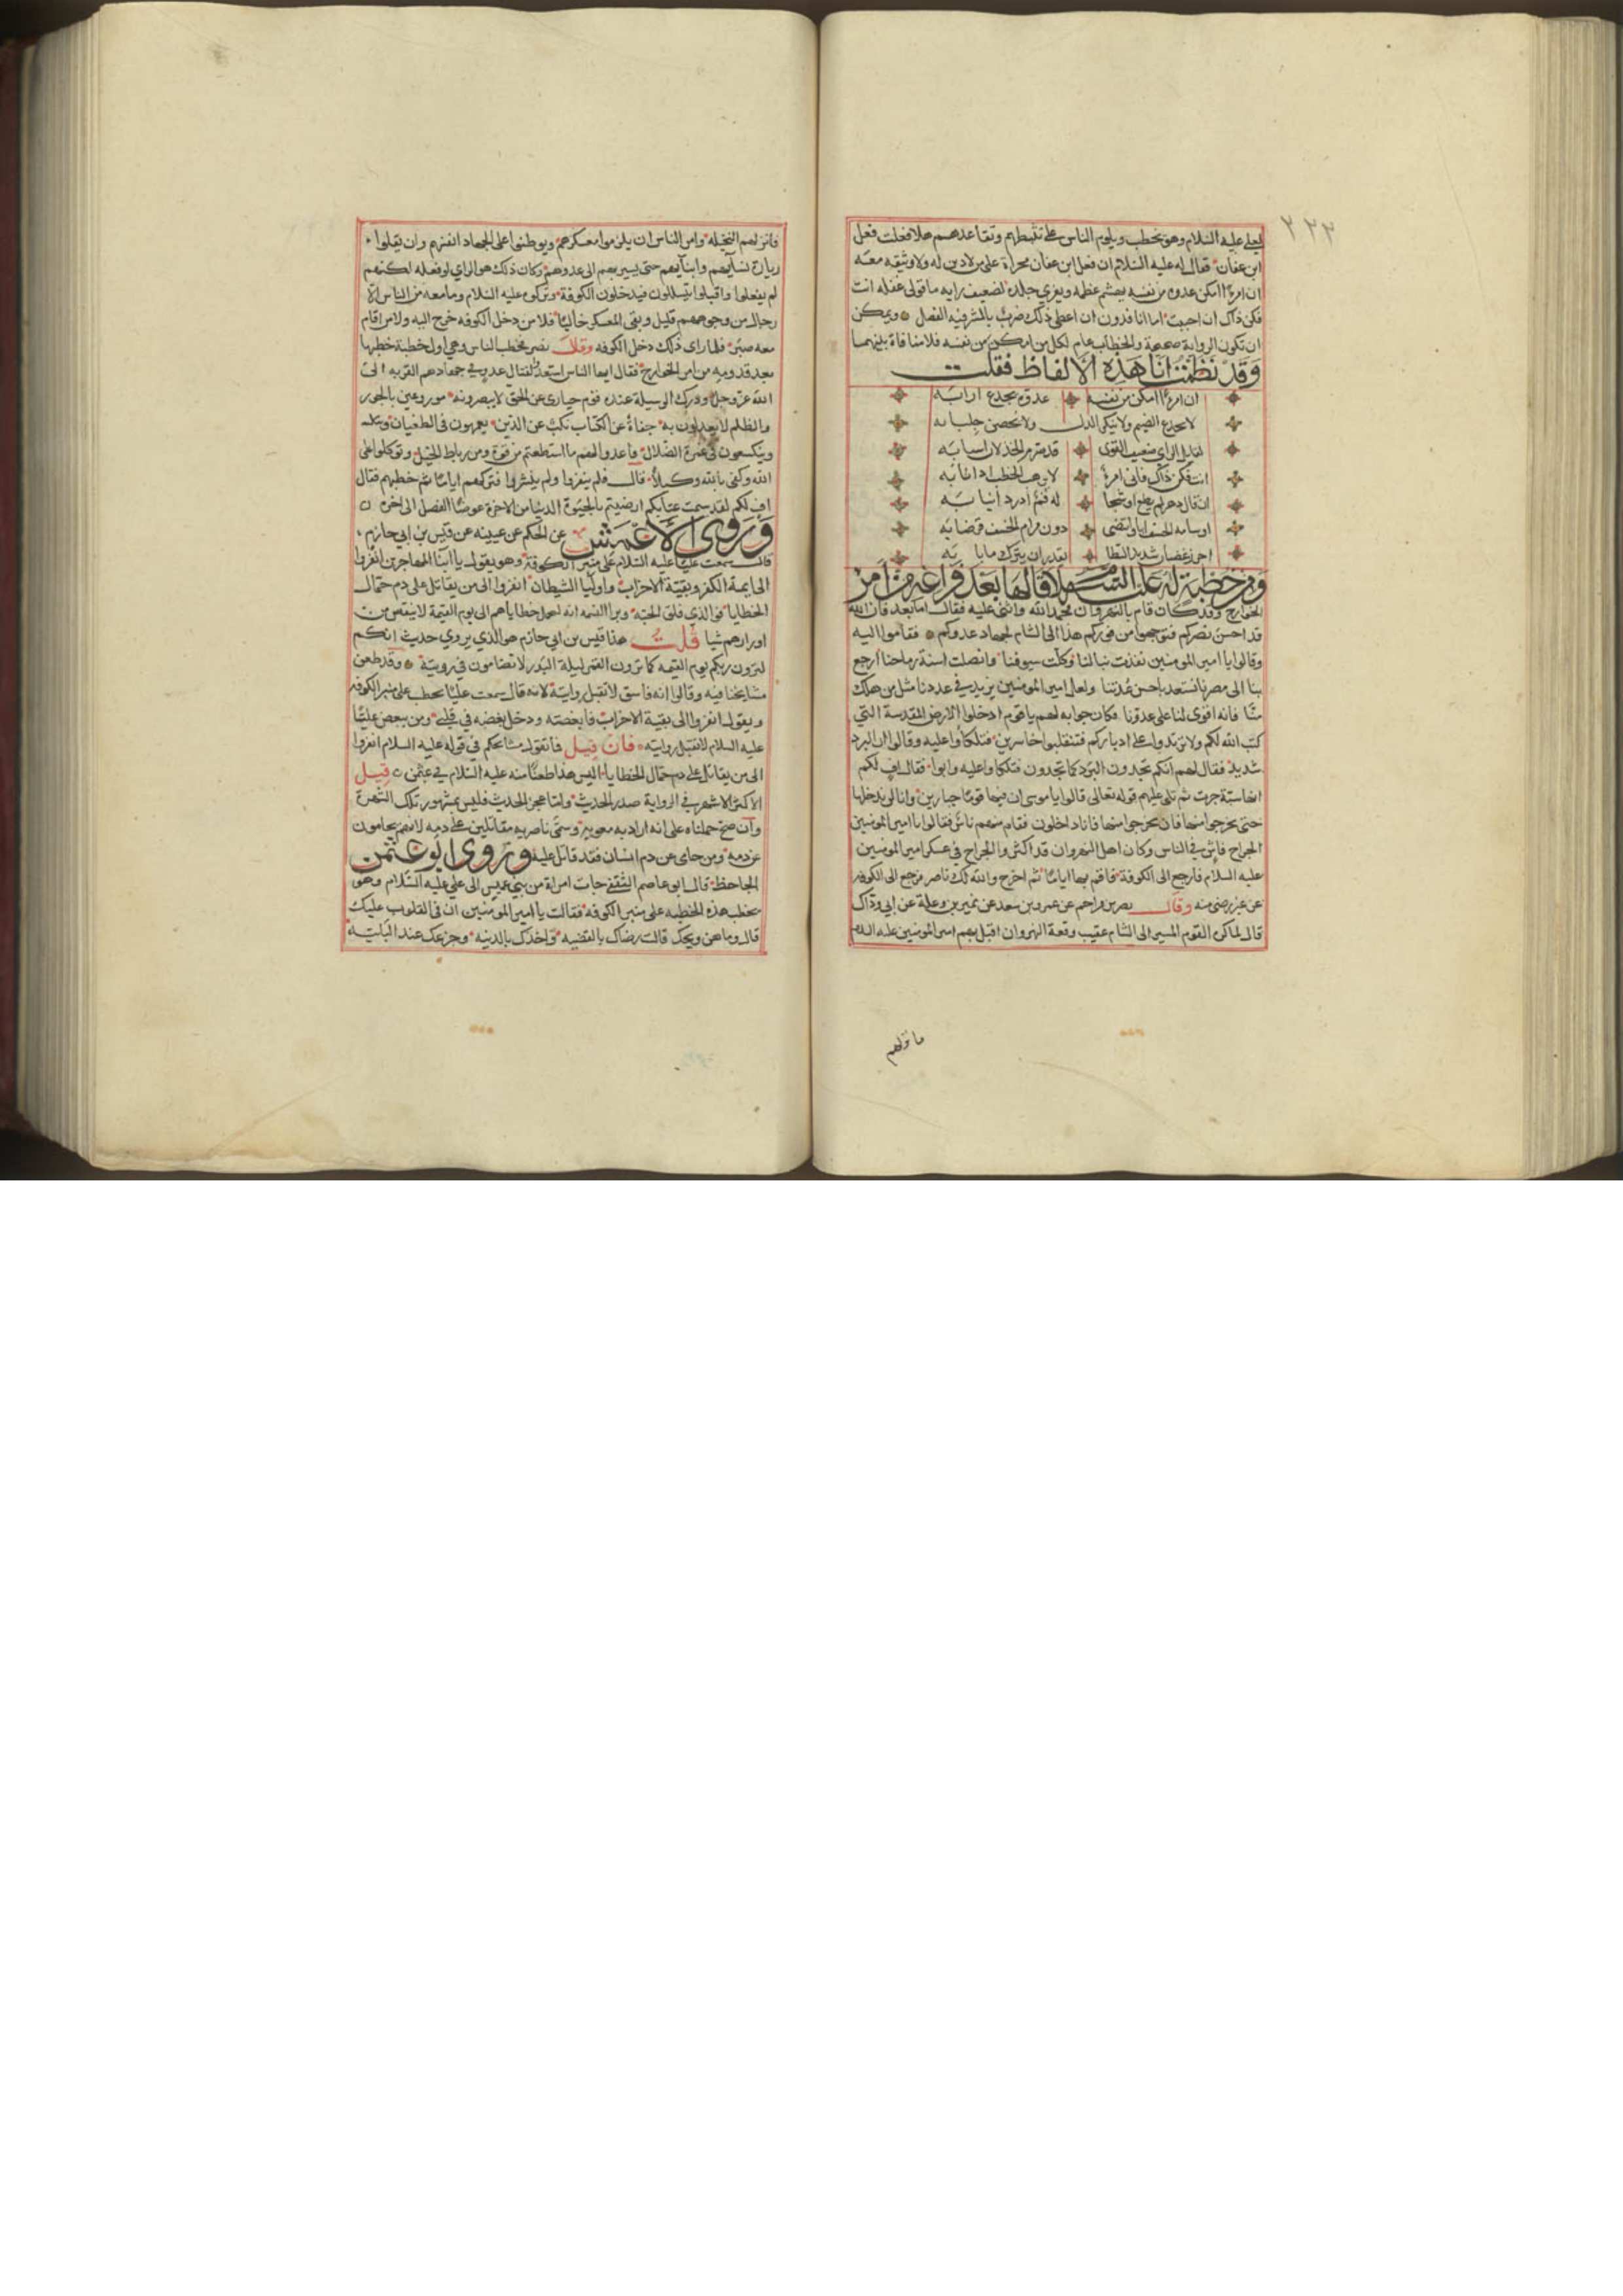 ٢٢٣
لعلي عليه السلام وهو يخطب ويلوم الناس على تثبيطهم وتقاعدهم هلا فعلت فعل
ابن عفان فقال له عليه السلام ان فعل ابن عفان مخزاة على من لا دين له ولا وثيقه معه
ان امرءا امكن عدوه من نفسه يهشم عظمه ويفري جلده لضعيف رايه مافون عقله انت
فكن ذاك ان احببت اما انا فدون ان اعطى ذلك ضرب بالمشرفيه الفصل ويمكن
ان تكون الروايه صحيحة والخطاب عام لكل من امكن من نفسه فلا منافاة بينهما
وقد نظمت انا هذه الالفاظ فقلت
ان امرءا امكن من نفسه عدوه يجدع ارابه
لا يدفع الضيم ولا ينكر الذل ولا يحصن جلبابه
لفايل الراي ضعيف القوى قد صرم الخذلان اسبابه
انت فكن ذاك فاني امرؤ لا يرهب الخطب اذا نابه
ان قال دهر لم يطع او شحا له فم ادرد انيابه
او سامه الخسف ابا وانتضى دون مرام الخسف قرضابه
اخزر غضبان شديد السطا يقدر ان يترك ما رابه
ومن خطبة له عليه السلام قالها بعد فراغه من امر
الخوارج وقد كان قام بالنهروان فحمد الله واثنى عليه فقال اما بعد فان الله
قد احسن نصركم فتوجهوا من فوركم هذا الى الشام لجهاد عدوكم فقاموا اليه
وقالوا يا امير المومنين نفذت نبالنا وكلت سيوفنا وانصلت اسنة رماحنا ارجع
بنا الى مصرنا نستعد باحسن عدتنا ولعل امير المومنين يزيد في عددنا مثل من هلك
منا فانه اقوى لنا على عدونا فكان جوابه لهم يا قوم ادخلوا الارض المقدسة التي
كتب الله لكم ولا ترتدوا على ادباركم فتنقلبوا خاسرين فتلكأوا عليه وقالوا ان البرد
شديد فقال لهم انكم تجدون البرد كما تجدون فتلكأوا عليه وابوا فقال اف لكم
انها سنة جرت ثم تلى عليهم قوله تعالى قالوا يا موسى ان فيها قوما جبارين وانا لن ندخلها
حتى يخرجوا منها فان يخرجوا منها فانا داخلون فقام منهم ناس فقالوا يا امير المومنين
الجراح فاش في الناس وكان اهل النهروان قد اكثروا الجراح في عسكر امير المومنين
عليه السلام فارجع الى الكوفة فاقم بها اياما ثم اخرج والله لك ناصر فرجع الى الكوفه
عن غير رضى منه وقال نصر بن مزاحم عن عمرو بن سعد عن نمير بن وعلة عن ابي وداك
قال لما كره القوم المسير الى الشام عقيب وقعة النهروان اقبل بهم امير المومنين عليه السلام
فانزلهم
فانزلهم النخيله وامر الناس ان يلزموا معسكرهم ويوطنوا على الجهاد انفسهم وان يقلوا
زيارة نسآيهم وابنآيهم حتى يسير بهم الى عدوهم وكان ذلك هو الراي لو فعلوه لكنهم
لم يفعلوا واقبلوا يتسللون فيدخلون الكوفة وتركوه عليه السلام وما معه من الناس الا
رجال من وجوههم قليل وبقي المعسكر خاليا فلا من دخل الكوفه خرج اليه ولا من اقام
معه صبر فلما راى ذلك دخل الكوفه وقال نصر فخطب الناس وهي اول خطبة خطبها
بعد قدومه من امر الخوارج فقال ايها الناس استعدوا لقتال عدو في جهادهم القربه الى
الله عز وجل ودرك الوسيلة عنده قوم حيارى عن الحق لا يبصرونه موزوعين بالجور
والظلم لا يعدلون به جفاة عن الكتاب نكب عن الدين يعمهون في الطغيان
ويتكسعون في غمرة الضلال فاعدوا لهم ما استطعتم من قوة ومن رباط الخيل وتوكلوا على
الله وكفى بالله وكيلا قال فلم ينفروا ولم ينشروا فتركهم اياما ثم خطبهم فقال
اف لكم لقد سيمت عتابكم ارضيتم بالحيوة الدنيا من الاخرة عوضا الفصل الى اخره
وروى الاعمش عن الحكم عن عيينه عن قيس بن ابي حازم
قال سمعت عليا عليه السلام على منبر الكوفة وهو يقول يا ابنا المهاجرين انفروا
الى ايمة الكفر وبقية الاحزاب واوليا الشيطان انفروا الى من يقاتل على دم حمال
الخطايا فو الذي فلق الحبه وبرا النسمه انه ليحمل خطاياهم الى يوم القيمة لا ينقص من
اوزارهم شيا قلت هذا قيس بن ابي حازم هو الذي يروي حديث انكم
لترون ربكم يوم القيمه كما ترون القمر ليلة البدر لا تضامون في رويته وقد طعن
مشايخنا فيه وقالوا انه فاسق لا تقبل روايته لانه قال سمعت عليا يخطب على منبر الكوفه
ويقول انفروا الى بقية الاحزاب فابغضته ودخل بغضه في قلبي ومن يبغض عليا
عليه السلام لا تقبل روايته فان قيل فما تقول مشايخكم في قوله عليه السلام انفروا
الى من يقاتل على دم حمال الخطايا اليس هذا طعنا منه عليه السلام في عثمن قيل
الاكثر الاشهر في الرواية صدر الحديث واما عجز الحديث فليس بمشهور تلك الشهرة
وان صح حملناه على انه اراد به معويه وسمى ناصريه مقاتلين على دمه لانهم يحامون
عن دمه ومن حامى عن دم انسان فقد قاتل عليه وروى ابو عثمن
الجاحظ قال ابو عاصم الثقفي جات امراة من بني عبس الى علي عليه السلام وهو
يخطب هذه الخطبه على منبر الكوفه فقالت يا امير المومنين ان في القلوب عليك
قال وما هن ويحك قالت رضاك بالقضيه واخذك بالدنيه وجزعك عند البليه